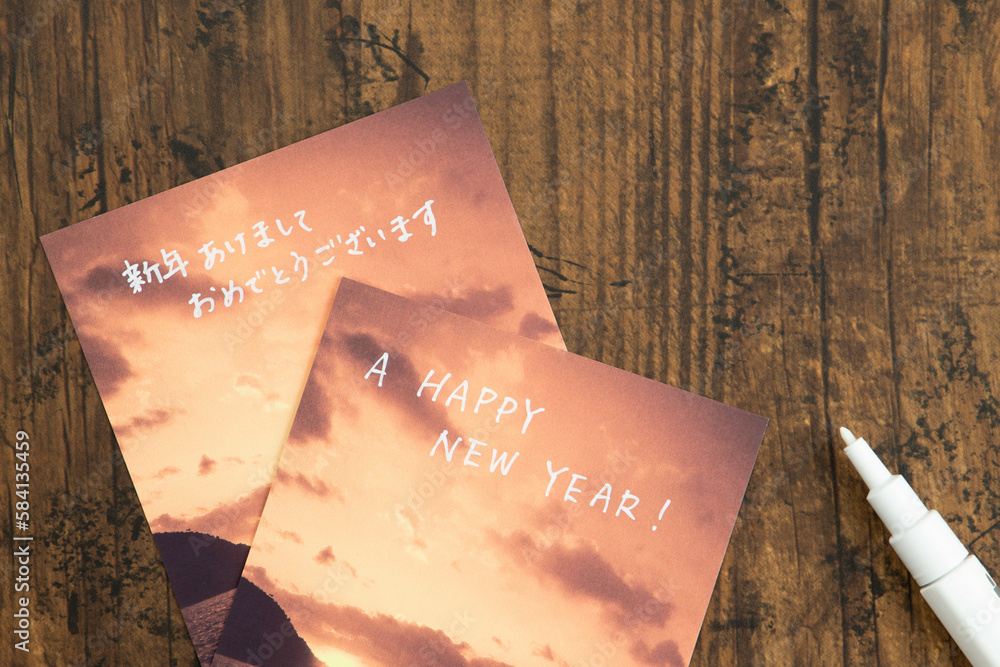 新年 あけまして
おめでとうございます
A HAPPY
NEW YEAR!
Adobe Stock | #584135459